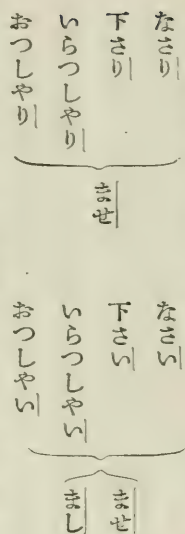 なさり
下さり
いらつしやり
おつしやり
ませ
なさい
下さい
いらつしやい
おつしやい
ませ
まし